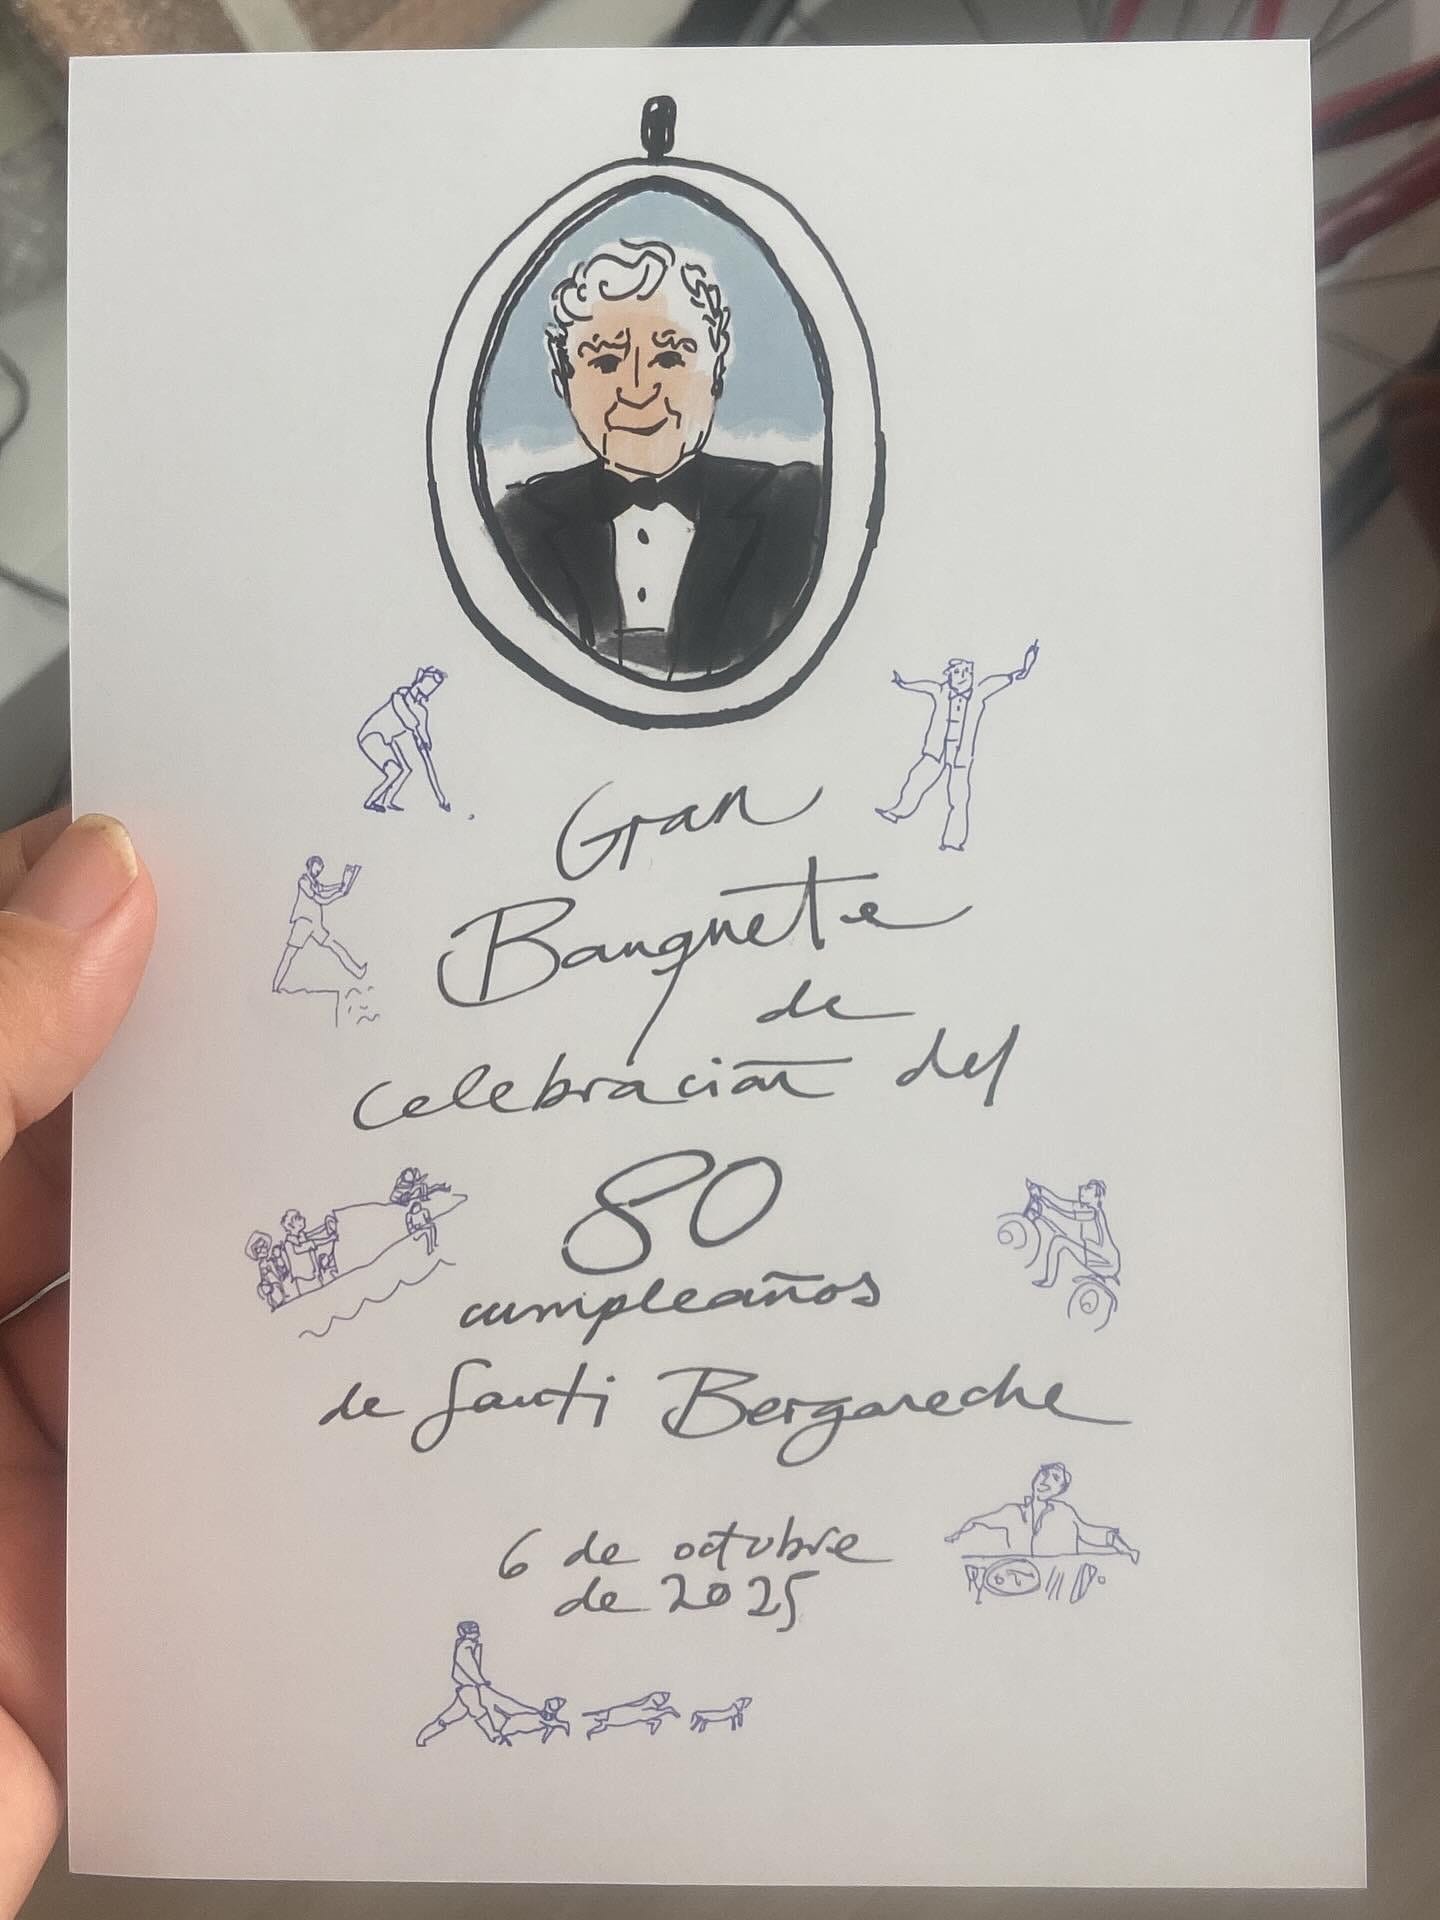 Gran
Banquete
de
celebración del
80
cumpleaños
de Santi Bergareche
6 de octubre
de 2025